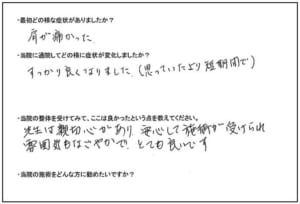 ・最初どの様な症状がありましたか？
肩が痛かった
・当院に通院してどの様に症状が変化しましたか？
すっかり良くなりました（思っていたより短期間で）
・当院の整体を受けてみて、ここは良かったという点を教えてください。
先生は親切心があり 安心して施術が受けられ
雰囲気もなごやかで とても良いです
・当院の施術をどんな方に勧めたいですか？